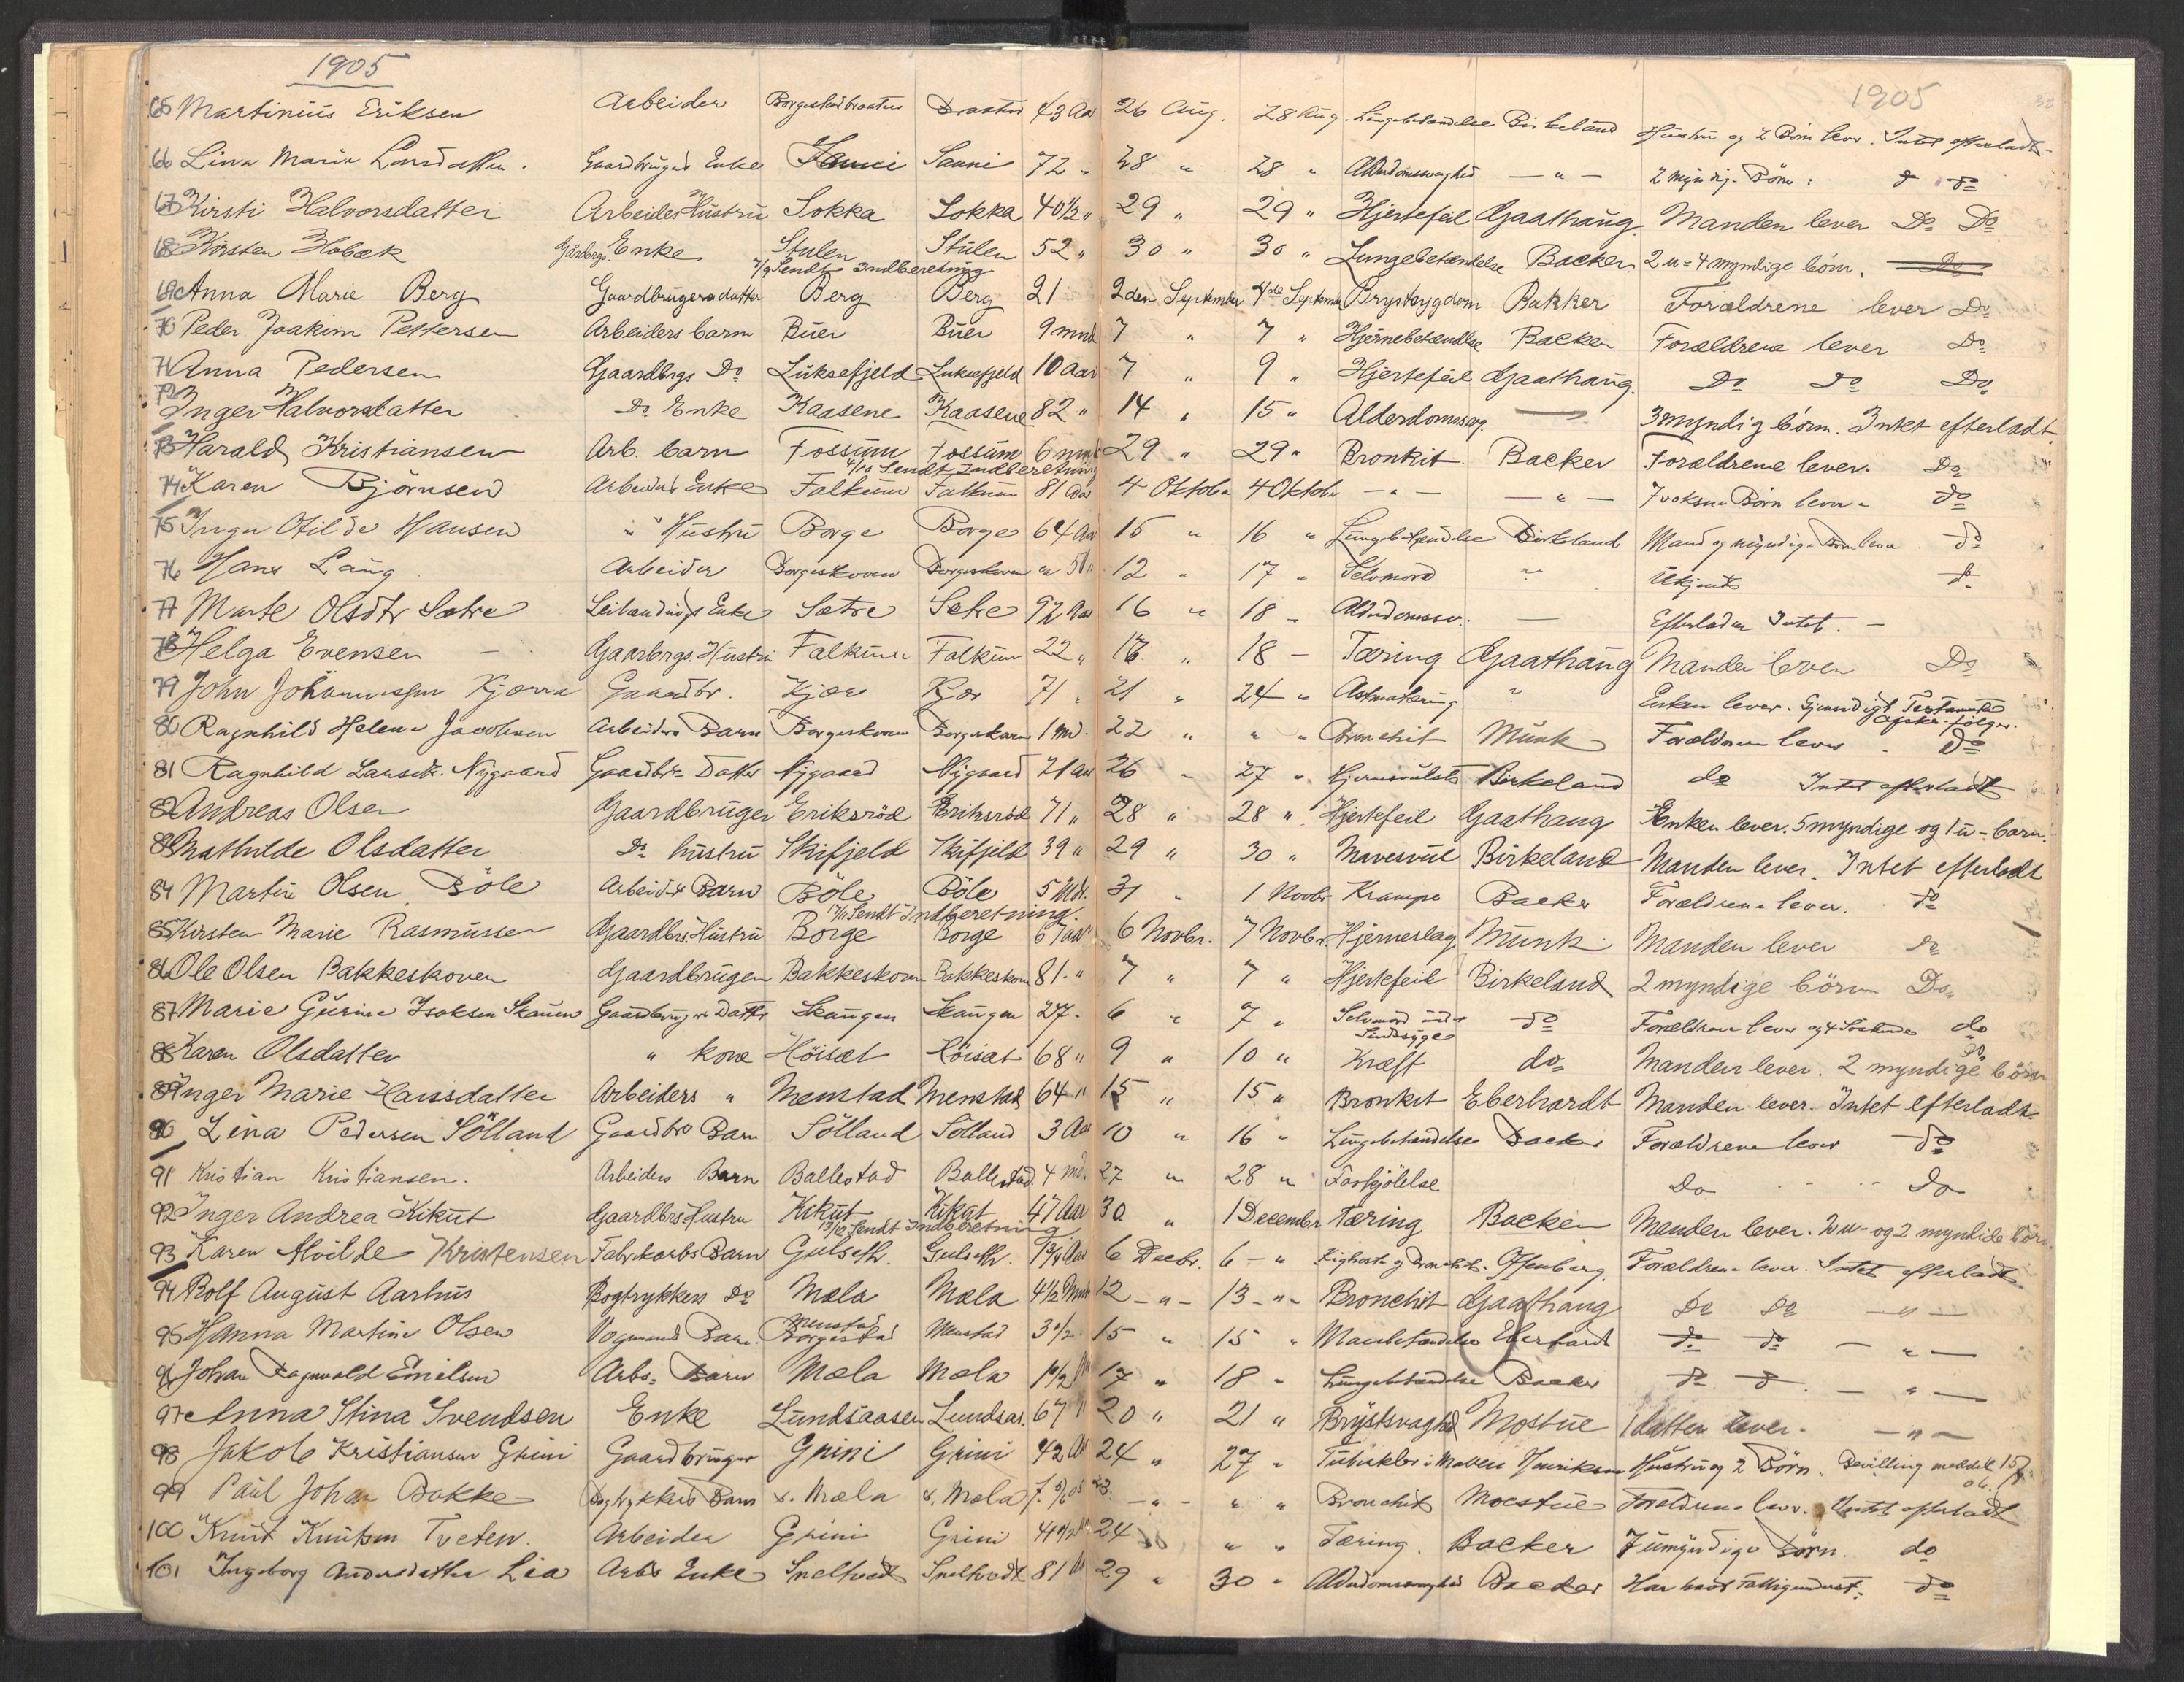 1905 1905
65 Martinius Eriksen Arbeider Borgestadbraaten Braaten 43 Aar 26 Aug. 28 Aug. Lungebetændelse Birkeland Hustru og 2 Børn lever. Intet efterladt
66 Lina Maria Larsdatter. Gaardbrugers Enke Sauni 72 " 28 " 28 " Alderdomssvaghed — " — 2 myndig. Børn: do do
67 Kirsti Halvorsdatter Arbeiders Hustru Sokka Sokka 40 1/2 " 29 " 29 " Hjertefeil Gaathaug. Manden lever Do Do
68 Kirsten Hobæk Gårdbrgs. Enke Stulen Stulen 52 " 30 " 30 " Lungebetændelse Backer. 2 u = 4 myndige börn. Do
7/9 Sendt Indberetning
69 Anna Marie Berg Gaardbrugersdatter Berg Berg 21 2den September 4de Septemr Brystsygdom Bakker Forældrene lever Do
70 Peder Joakim Pettersen Arbeiders barn Buer Buer 9 mnd 7 " 7 " Hjernebetændlse Backer Forældrene lever Do
71 Anna Pedersen Gaardbrgs Do Luksefjeld Luksefjeld 10 Aar 7 " 9 " Hjertefeil Gaathaug. Do Do Do
72 Inger Halvorsdatter Do Enke Kaasene Kaasene 82 " 14 " 15 " Alderdomssvag. — 3 myndig börn. Intet efterladt
73 Harald Kristiansen Arb. barn Fossum Fossum 6 mnd 29 " 29 " Bronkit. Backer Forældrene lever. Do
4/10 Sendt Indberetning
74 Karen Björnsen Arbeiders Enke Falkum Falkum 81 Aar 4 Oktober 4 Oktober — " — — " — 7 voksne Børn lever. do
75 Inger Otilde Hansen " Hustru Borge Borge 64 Aar 15 " 16 " Lungebetændelse Birkeland Mand og myndige Børn lever do
76 Hans Laug Arbeider Borgeskoven Borgeskoven ca 50 " 12 " 17 " Selvmord " Ukjendt do
77 Marte Olsdtr Sætre Leilændings Enke Sætre Sætre 92 Aar 16 " 18 " Alderdomssv. — Efterlader Intet. —
78 Helga Evensen — Gaarbrgs. Hustru Falkum Falkum 22 " 18 " 18 — Tæring Gaathaug Manden lever Do
79 John Johannessen Kjærra Gaardbr. Kjær Kjær 71 " 21 " 24 " " Enken lever. Gjensidigt Testamente
Afskr. følger.
80 Ragnhild Helene Jacobsen Arbeiders Barn Borgeskoven Borgeskoven 1 Md. 22 " " " Bronchit Munk Forældrene lever. do
81 Ragnhild Larsdtr. Nygaard Gaardbrs Datter Nygaard Nygaard 21 Aar 26 " 27 " Hjernesvulst Birkeland do Intet efterladt
82 Andreas Olsen Gaardbruger Eriksröd Eriksröd 71 " 28 " 28 " Hjertefeil Gaathaug Enken lever. 5 myndige og 1 u- barn.
83 Mathilde Olsdatter Do hustru Skifjeld Skifjeld 39 " 29 " 30 " Mavesvul Birkeland Manden lever. Intet efterladt
84 Martin Olsen Böle Arbeiders Barn Böle Böle 5 Mdr. 31 " 1 Novbr Krampe Backer Forældrene lever. do
Sendt Indberetning.
85 Kirsten Marie Rasmussen Gaardbrs. Hustru Borge Borge 67 aar 6 Novbr. 7 Novbr. Hjerneslag Munk Manden lever do
86 Ole Olsen Bakkeskoven Gaardbruger Bakkeskoven Bakkeskoven 81 " 7 " 7 " Hjertefeil Birkeland 2 myndige börn Do
87 Marie Gurine Isaksen Skauen Gaardbrugers Datter Skaugen Skaugen 27. 6 " 7 " Selvmord under do Forældrene lever og 4 Söskende do
Sindssyge
88 Karen Olsdatter " kone Höisæt Höisæt 68 " 9 " 10 " Kræft do Manden lever. 2 myndige börn Do
89 Inger Marie Hansdatter Arbeiders " Menstad Menstad 64 " 15 " 15 " Bronkit Eberhardt Manden lever. Intet efterladt
90 Lina Pedersen Sölland Gaardbrs Barn Sölland Sölland 3 Aar 10 " 16 " Lungebetændelse Backer Forældrene lever do
91 Kristian Kristiansen. Arbeiders Barn Ballestad Ballestad. 4 md. 27 " 28 " Forkjölelse Do Do
92 Inger Andrea Kikut Gaardbrs Hustru Kikut Kikut 47 Aar 30 " 1 Decembr Tæring Backer Manden lever. 2 u- og 2 myndige börn.
13/12 Sendt Indberetning
93 Karen Alvilde Kristensen Fabrikarbs Barn Gulseth. Gulseth. 6 Decbr. 6 - " Kighoste og Bronchit. Offenberg. Forældrene lever. Intet efterladt
94 Rolf August Aarhus Bogtrykkers Do Mæla Mæla 4 1/2 Mnd 12 - " - 13 - " - Bronchit Gaathaug Do Do — " —
95 Hanna Martine Olsen Vognmand Barn. Borgestad Menstad 15 " 15 " Eberhardt do do — " —
Menstad
96 Johan Ragnvald Emilsen Arbs. Barn Mæla Mæla 17 " 18 " Lungebetændelse Backer do do — " —
97 Anna Stina Svendsen Enke Lundsaasen Lundsas. 67 20 " 21 " Brystsvaghed Mostue 1 datter lever. — " —
98 Jakob Kristiansen Grini Gaardbruger Grini Grini 42 Aar 24 " 27 " Tuberkler i Maven Henriksen Hustru og 2 Børn. Bevilling meddelt
99 Paul Johan Bakke Bogtrykkers Barn N. Mæla N. Mæla 23. - " - " " Bronchit Moestue Forældrene lever. Intet efterladt
100 Knut Knutsen Tveten. Arbeider Grini Grini 24 " " Tæring. Backer 7 umyndige Børn. do
101 Ingeborg Andersdatter Lia Arbs Enke Sneltvedt Sneltvedt 81 29 " 30 " Alderdomssvaghed Backer Har havt Fattigunderst. do